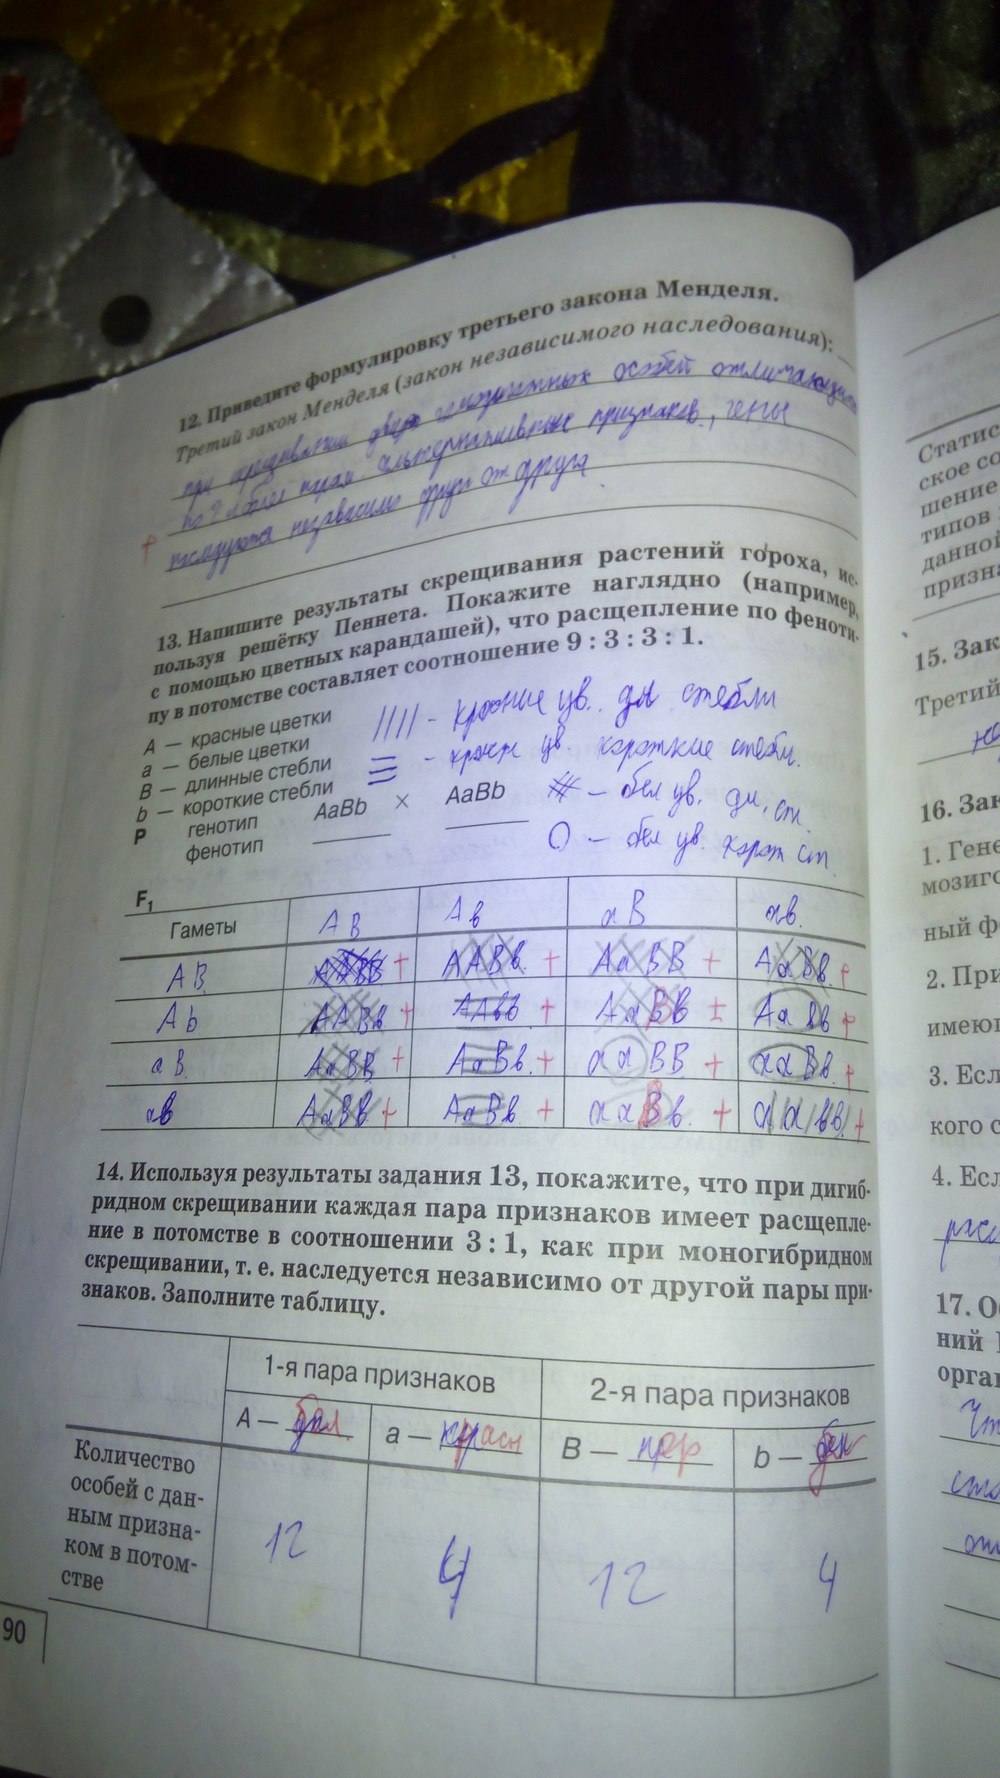 12. Приведите формулировку третьего закона Менделя.
Третий закон Менделя (закон независимого наследования):
при скрещивании двух гомозиготных особей отличающихся
по 2 и более парам альтернативные признаков, гены
наследуются независимо друг от друга
13. Напишите результаты скрещивания растений гороха, ис-
пользуя решётку Пеннета. Покажите наглядно (например,
с помощью цветных карандашей), что расщепление по феноти-
пу в потомстве составляет соотношение 9 : 3 : 3 : 1.
A — красные цветки
a — белые цветки
B — длинные стебли
b — короткие стебли
//// - красные цв. дл стебли
- красн цв. короткие стебл.
- бел цв. дл. ст.
O - бел цв. корот ст.
P генотип AaBb × AaBb
фенотип
F1
Гаметы AB Ab aB ab.
AB AABB + AABb + AaBB + AaBb +
Ab AABb + AAbb + AaBb ± Aa bb +
aB AaBB + AaBb. + aaBB + aaBb. +
ab AaBb + AaBb. + aaBb. + aabb +
14. Используя результаты задания 13, покажите, что при дигиб-
ридном скрещивании каждая пара признаков имеет расщепле-
ние в потомстве в соотношении 3 : 1, как при моногибридном
скрещивании, т. е. наследуется независимо от другой пары при-
знаков. Заполните таблицу.
1-я пара признаков 2-я пара признаков
A — бел. a — красн B — кор b —
Количество
особей с дан-
ным призна-
ком в потом-
стве
12 4 12 4
90
Статис
ское со
шение
типов
данной
призна
15. Зак
Третий
16. Зак
1. Гене
мозиго
ный ф
2. При
имеющ
3. Есл
кого с
4. Есл
17. О
ний
орган